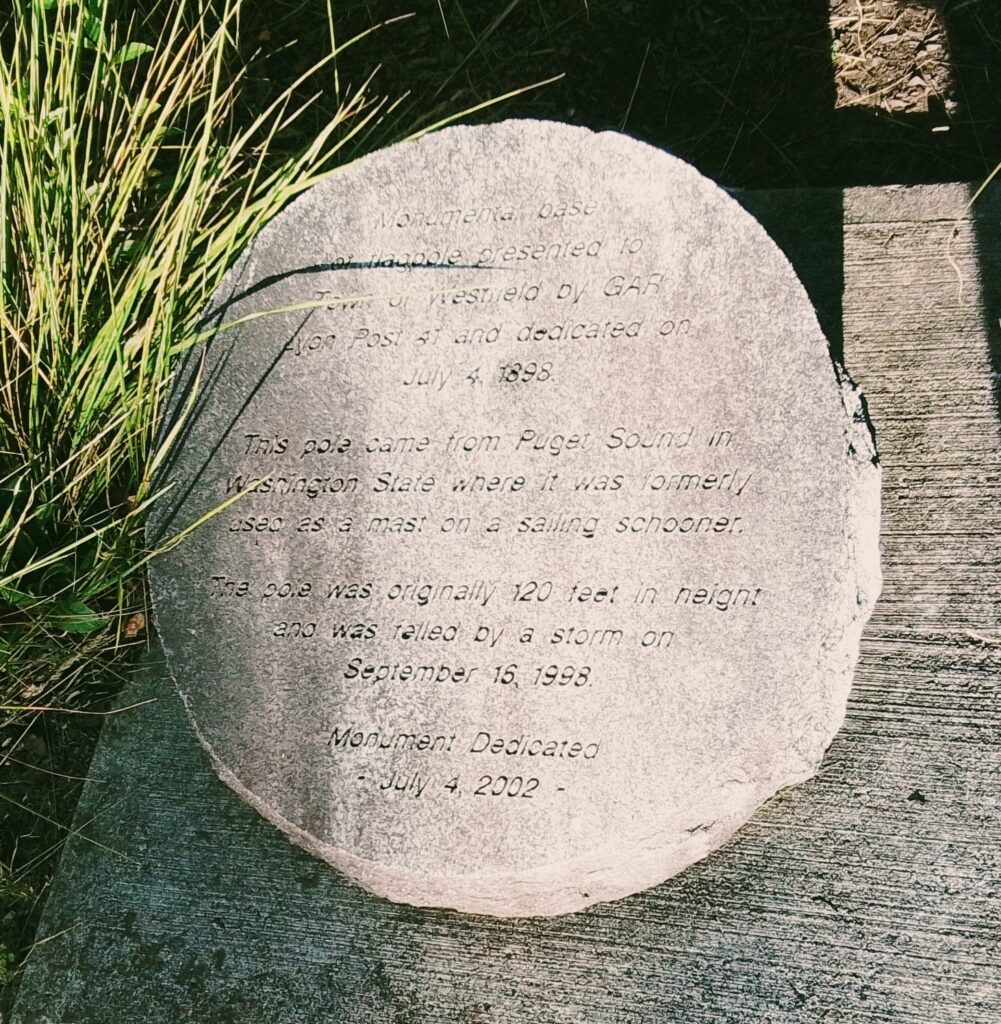 Monumental base
of flagpole presented to
Town of Westfield by GAR
Lyon Post 41 and dedicated on
July 4, 1898.
This pole came from Puget Sound in
Washington State where it was formerly
used as a mast on a sailing schooner.
The pole was originally 120 feet in height
and was felled by a storm on
September 16, 1998.
Monument Dedicated
- July 4, 2002 -